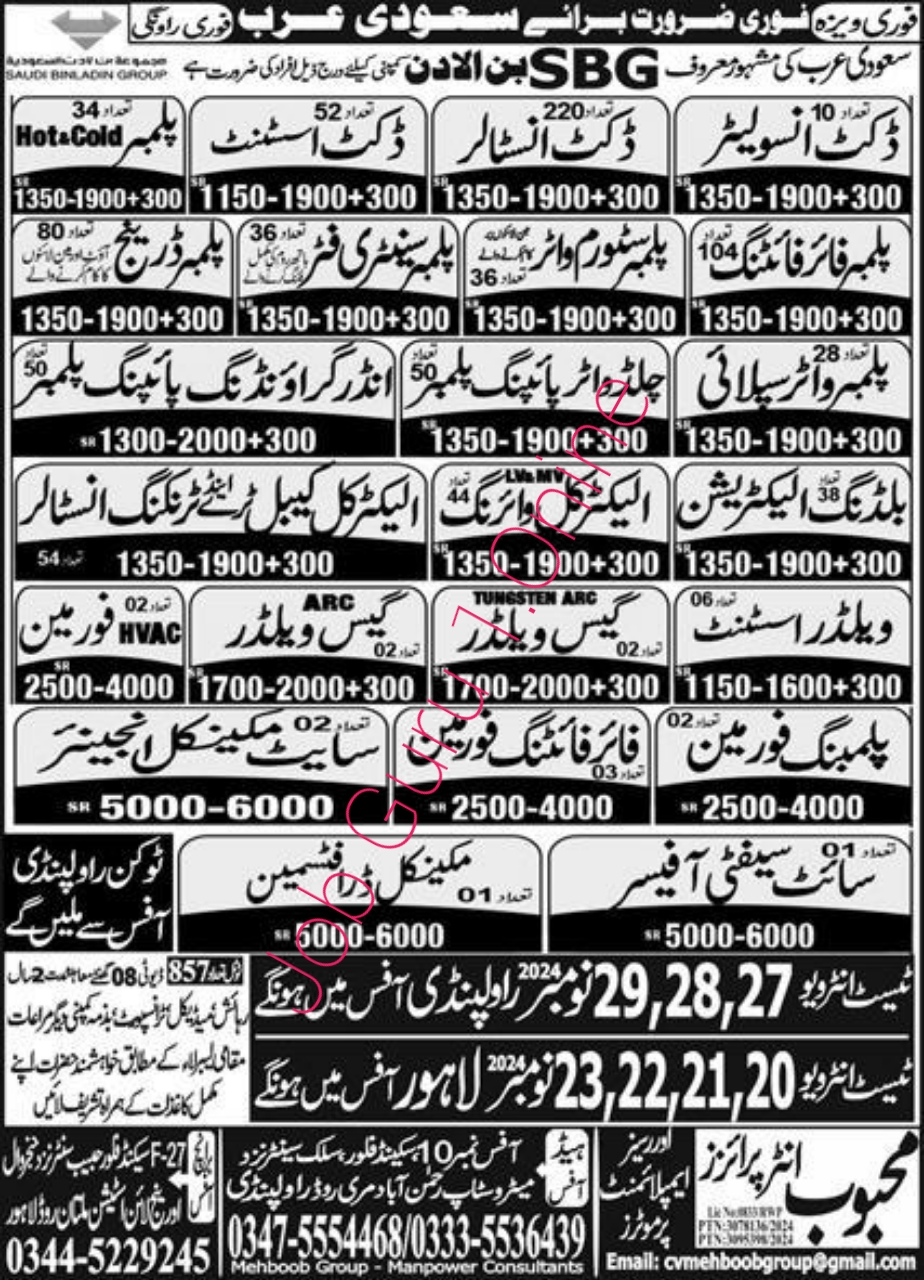 فوری ویزہ فوری ضرورت برائے سعودی عرب فوری روانگی
سعودی عرب کی مشہور معروف SBG بن لادن کمپنی کیلئے درج ذیل افراد کی ضرورت ہے
SAUDI BINLADIN GROUP
ڈکٹ انسولیٹر تعداد 10
SR 1350-1900+300
ڈکٹ انسٹالر تعداد 220
SR 1350-1900+300
ڈکٹ اسسٹنٹ تعداد 52
SR 1150-1900+300
پلمبر Hot&Cold تعداد 34
SR 1350-1900+300
پلمبر فائر فائٹنگ تعداد 104
SR 1350-1900+300
پلمبر سٹورم واٹر تعداد 36
SR 1350-1900+300
پلمبر سینٹری فٹر تعداد 36
SR 1350-1900+300
پلمبر ڈرینج تعداد 80
1350-1900+300
پلمبر واٹر سپلائی تعداد 28
SR 1350-1900+300
چلڈ واٹر پائپنگ پلمبر تعداد 50
SR 1350-1900+300
انڈر گراؤنڈنگ پائپنگ پلمبر تعداد 50
SR 1300-2000+300
بلڈنگ الیکٹریشن تعداد 38
SR 1350-1900+300
الیکٹرکل وائرنگ LV&MV تعداد 44
SR 1350-1900+300
الیکٹرکل کیبل ٹرے اینڈ ٹرنکنگ انسٹالر
1350-1900+300 تعداد 54
ویلڈر اسسٹنٹ تعداد 06
SR 1150-1600+300
TUNGSTEN ARC
گیس ویلڈر تعداد 02
SR 1700-2000+300
ARC
گیس ویلڈر تعداد 02
SR 1700-2000+300
HVAC فورمین تعداد 02
SR 2500-4000
پلمبنگ فورمین تعداد 02
SR 2500-4000
فائر فائٹنگ فورمین تعداد 03
SR 2500-4000
سایٹ مکینکل انجینئر تعداد 02
SR 5000-6000
سائٹ سیفٹی آفیسر تعداد 01
SR 5000-6000
مکینکل ڈرافٹسمین تعداد 01
SR 5000-6000
ٹوکن راولپنڈی
آفس سے ملیں گے
ٹیسٹ انٹرویو 27,28,29 نومبر 2024 راولپنڈی آفس میں ہونگے
ٹیسٹ انٹرویو 20,21,22,23 نومبر 2024 لاہور آفس میں ہونگے
857 ڈیوٹی 08 گھنٹے معاہدہ مدت 2 سال
رہائش، میڈیکل، ٹرانسپورٹ بذمہ کمپنی دیگر مراعات
مقامی لیبر لاء کے مطابق خواہشمند حضرات اپنے
مکمل کاغذات کے ہمراہ تشریف لائیں
محبوب انٹرپرائزز
Lic No:0833/RWP
PTN:3078136/2024
PTN:3095398/2024
اوورسیز
ایمپلائمنٹ
پروموٹرز
Email: cvmehboobgroup@gmail.com
ہیڈ آفس
آفس نمبر 10، سیکنڈ فلور، سلک سینٹر نزد
میٹرو سٹاپ رحمٰن آباد مری روڈ راولپنڈی
0347-5554468/0333-5536439
Mehboob Group - Manpower Consultants
برانچ آفس
F-27 سیکنڈ فلور حبیب سنٹر نزد
اورنج لائن اسٹیشن ملتان روڈ لاہور
0344-5229245
Job Guru 7.Online